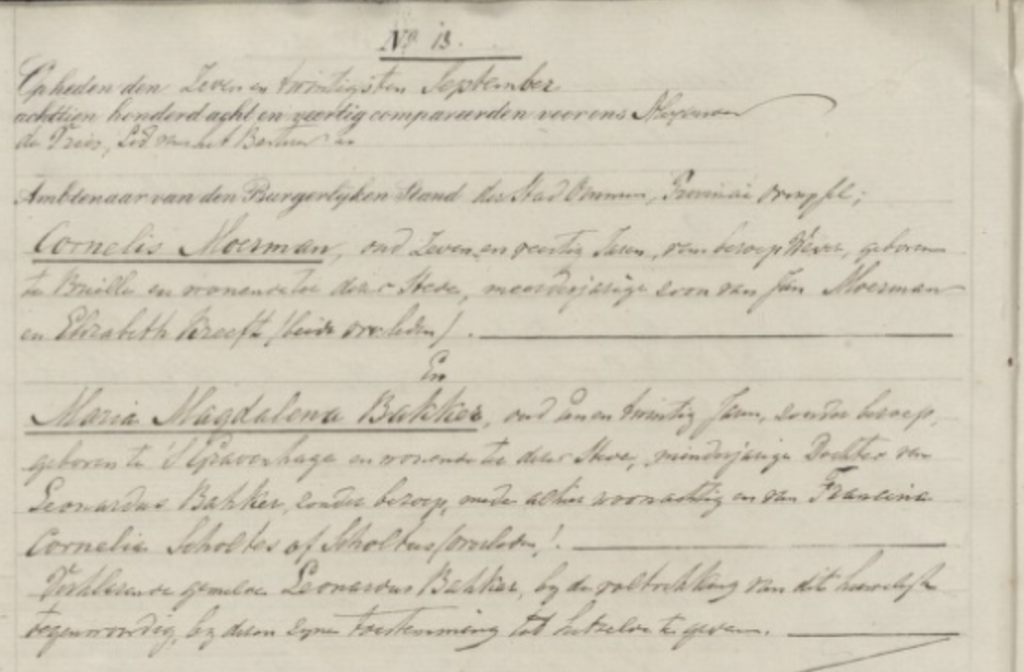 No 13.
Op heden den Zeven en twintigsten September
achttien honderd acht en veertig compareerden voor ons
de Vries, Lid van het Bestuur en
Ambtenaar van den Burgerlyken Stand der Stad Ommen, Provincie Overyssel;
Cornelis Moerman, oud Zeven en veertig Jaren, van beroep Wever, geboren
te Brielle en wonende te dezer Stede, meerderjarige zoon van Jan Moerman
en Elizabeth Kreeft (beide overleden).
En
Maria Magdalena Bakker, oud een en twintig Jaren, zonder beroep,
geboren te 'S Gravenhage en wonende te dezer Stede, minderjarige Dochter van
Leonardus Bakker, zonder beroep, mede alhier woonachtig en van Francina
Cornelia Scholtes of Scholtus (overleden).
Verklarende gemelde Leonardus Bakker, by de voltrekking van dit huwelyk
tegenwoordig, by dezen zyne toestemming tot hetzelve te geven.